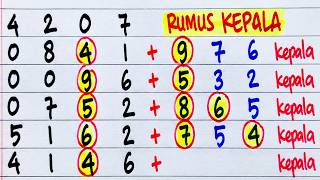 4 2 0 7 RUMUS KEPALA
0 8 4 1 + 9 7 6 kepala
0 0 9 6 + 5 3 2 kepala
0 7 5 2 + 8 6 5 kepala
5 1 6 2 + 7 5 4 kepala
4 1 4 6 + kepala